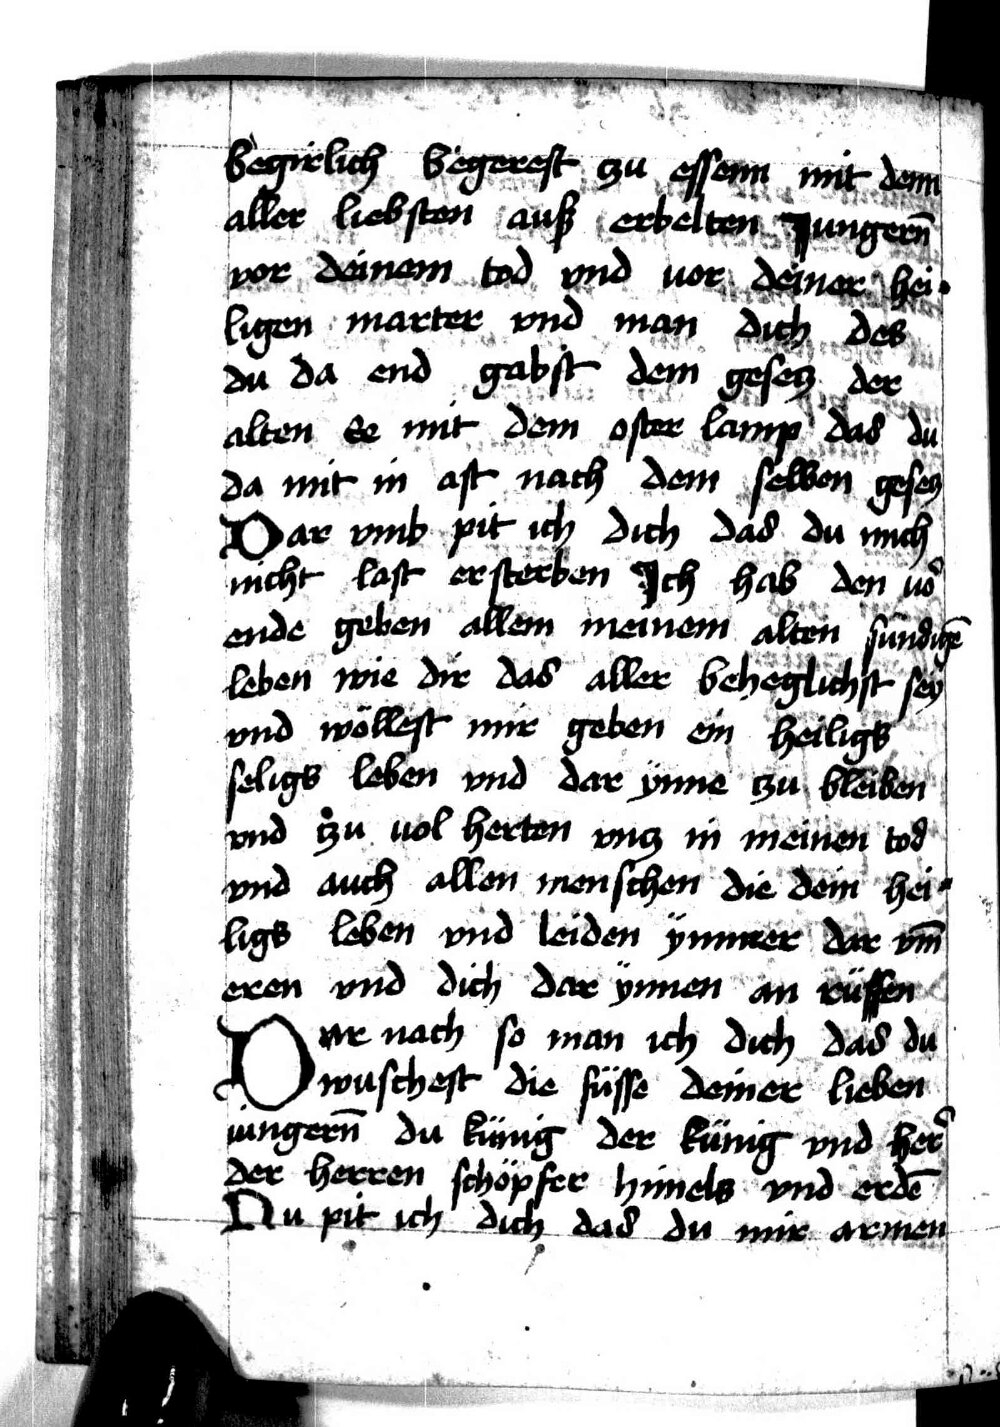 begirlich begerest tzu essenn mit denn
aller liebsten auß erbelten Jungern̄
vor deinem tod vnd uor deiner hei-
ligen marter vnd man dich des
du da end gabst dem gesetz der
alten Ee mit dem oster lamp das du
da mit in ast nach dem selben gesetz
Dar vmb pit ich dich das du mich
nicht last ersterben Ich hab den uō
ende geben allem meinem alten sundigē
leben wie dir das aller beheglichst sey
vnd wöllest mir geben ein heiligs
seligs leben vnd dar ynne tzu bleiben
vnd tzu uol herten vntz in meinen tod
vnd auch allen menschen die dein hei-
ligs leben vnd leiden ÿmmer dar vm̄
eren vnd dich dar ÿnnen an rüffen
Dar nach so man ich dich das du
wuschest die füsse deiner lieben
iungern̄ du künig der künig vnd her͛
der herren schöpfer himels vnd erdē
Nu pit ich dich das du mir armen